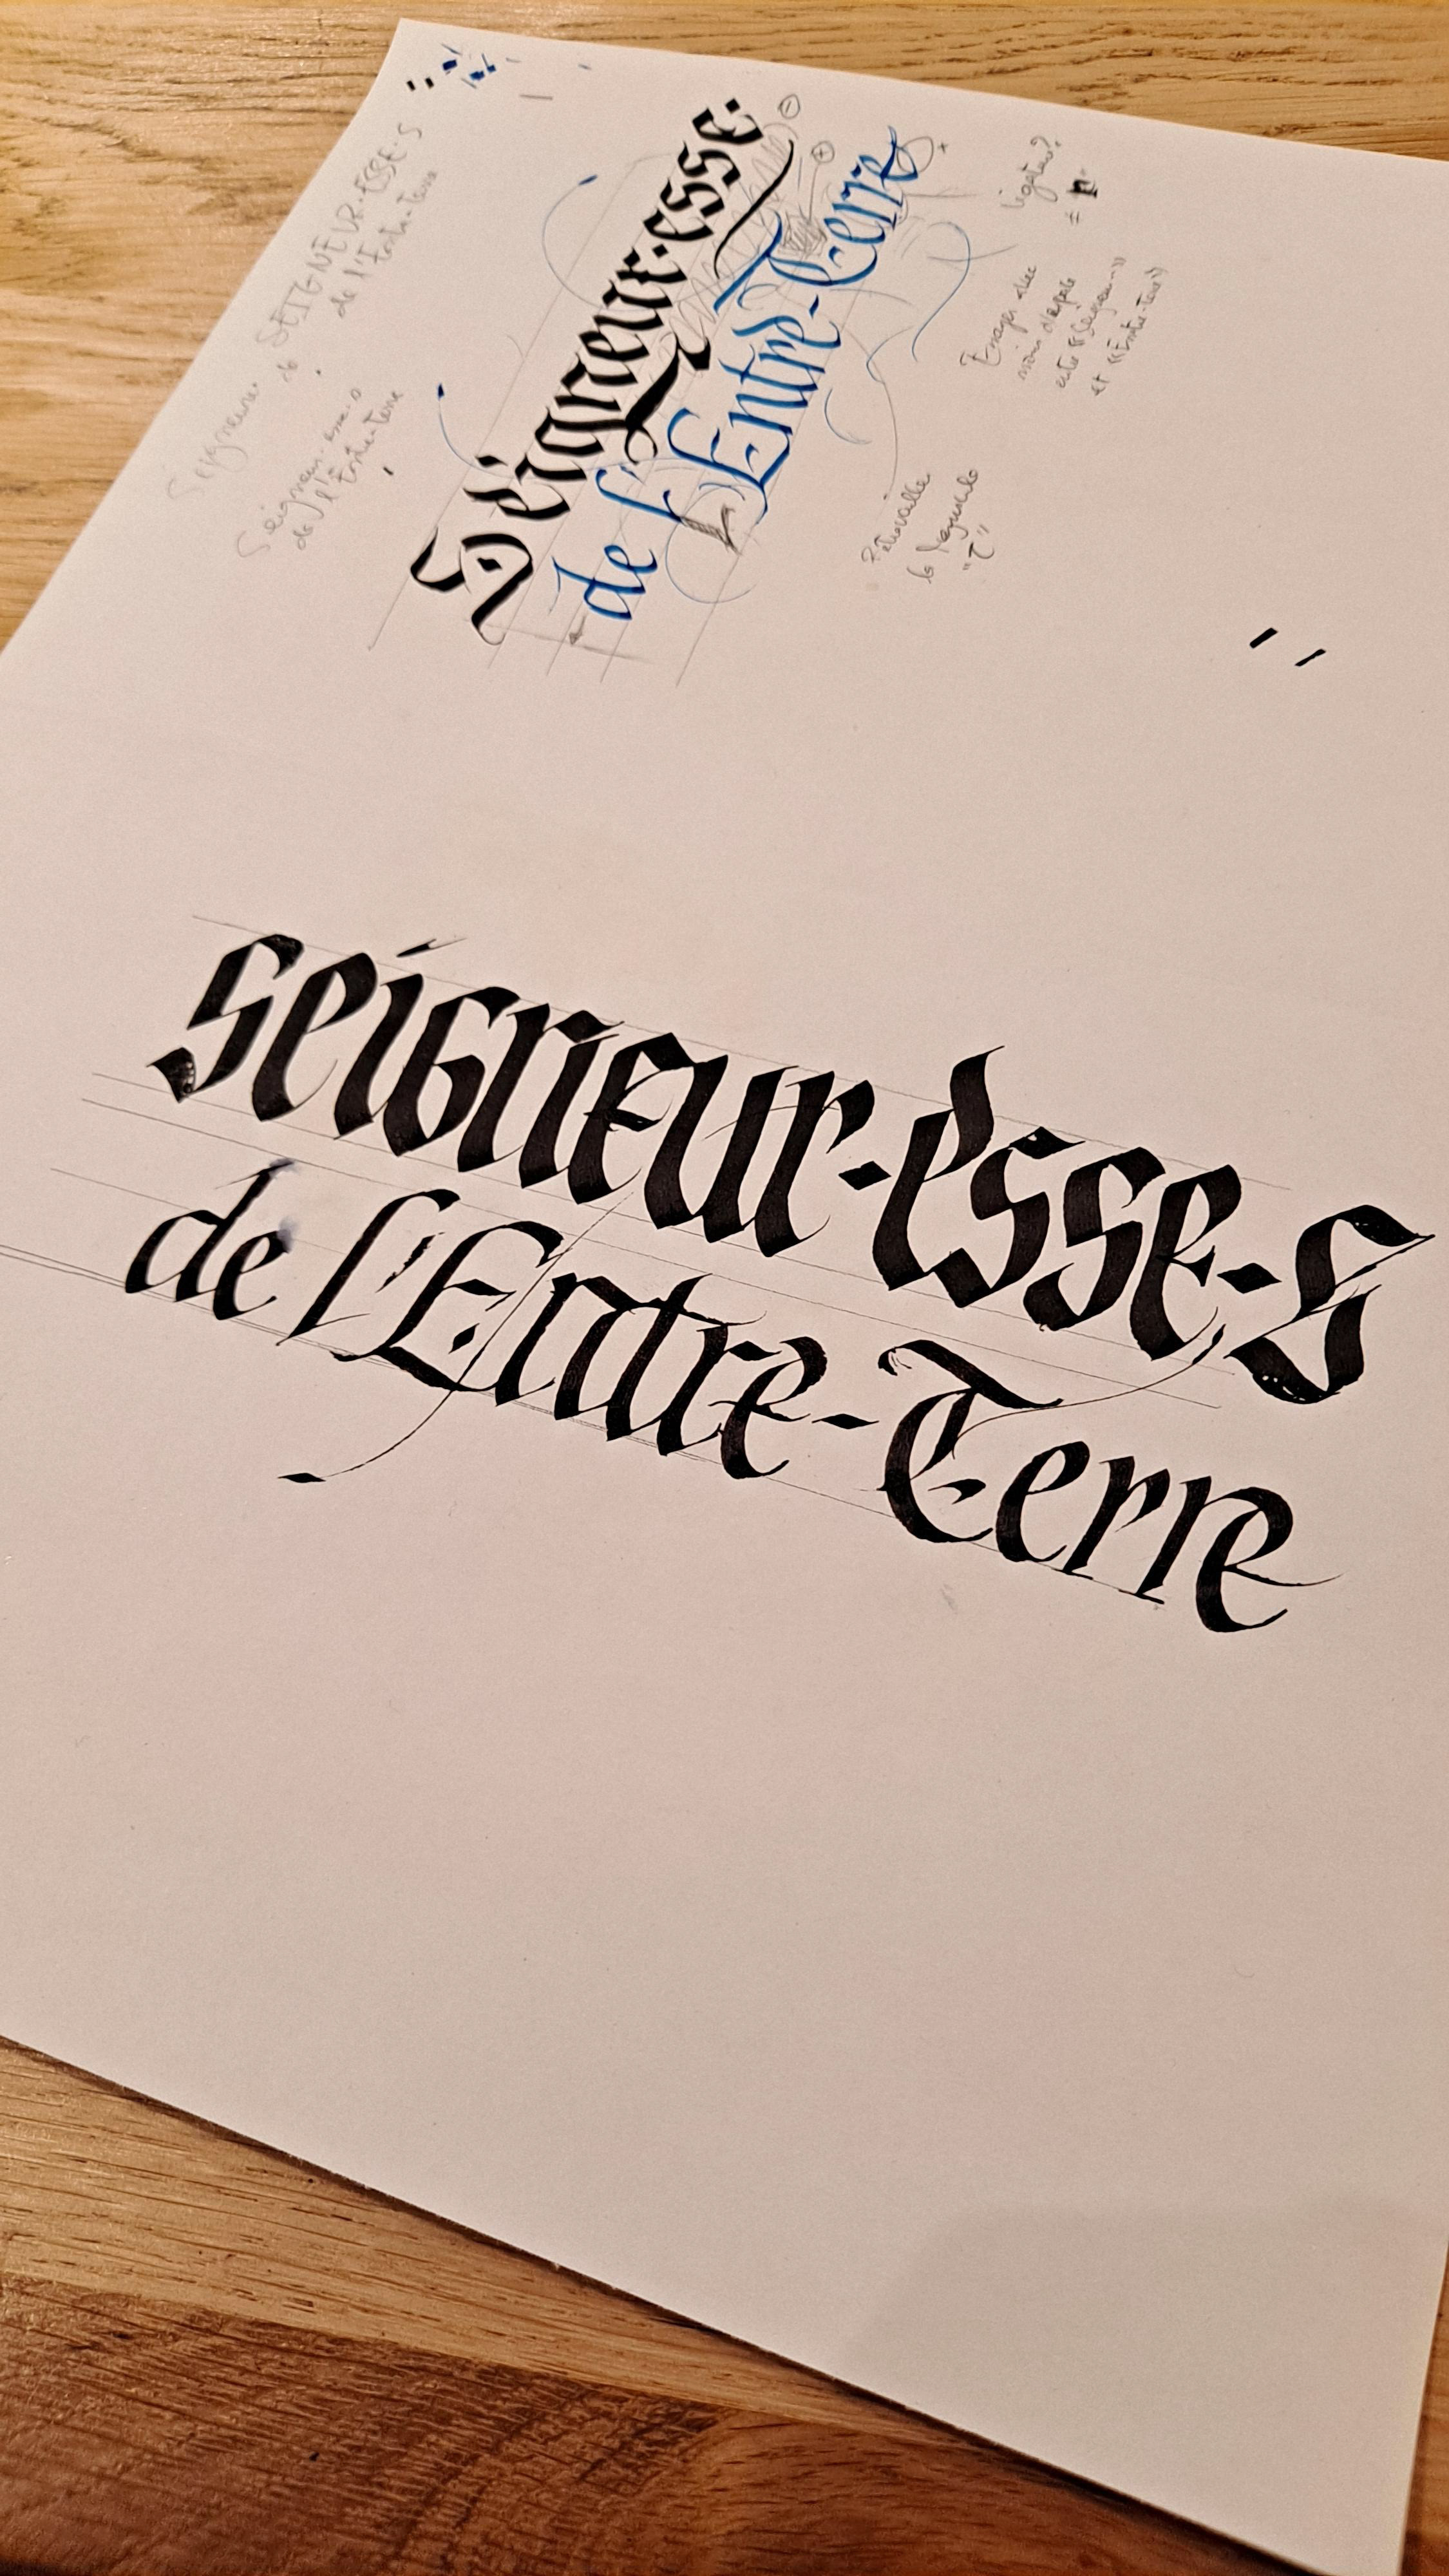 SEIGNEUR·ESSE·S
de l'Entre-Terre
Seigneur·esse·s
de l'Entre-Terre
Seigneur·esse·
de l'Entre-Terre
ligature?
Essayer avec
moins d'espace
entre «Seigneur-»
et «Entre-Terre»
Retravailler
la Majuscule
"T"
Seigneur-esse-s
de l'Entre-Terre